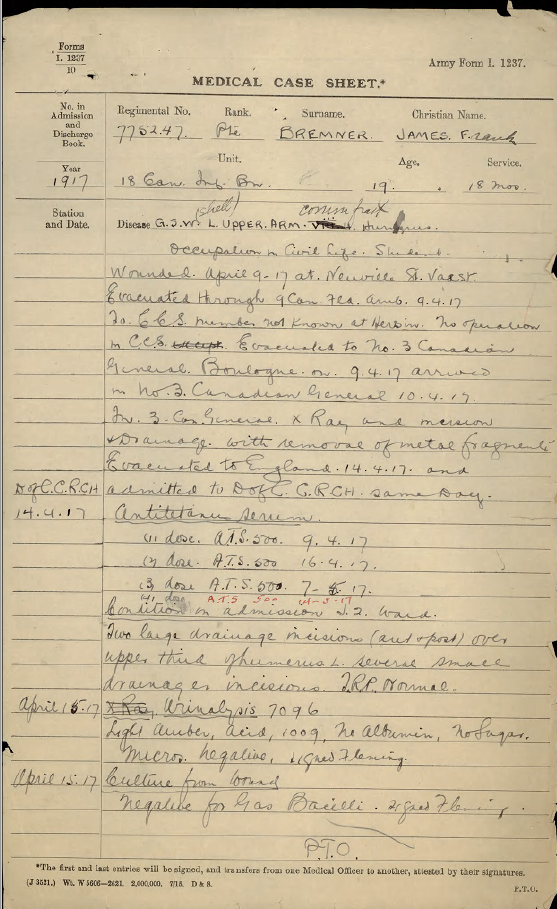 Forms
I. 1237
10
Army Form I. 1237.
MEDICAL CASE SHEET.*
No. in
Admission
and
Discharge
Book.
Regimental No. Rank. Surname. Christian Name.
775247. Pte BREMNER. JAMES. Frank
Year
Unit. Age. Service.
1917
18 Can. Inf. Bn. 19. 18 mos.
Station
and Date.
(shell) comm frax
Disease G.S.W. L. UPPER. ARM. Humerus.
Occupation in Civil Life. Student.
Wounded. April 9-17 at. Neuville St. Vaast.
Evacuated through 9 Can. Fld. Amb. 9.4.17
To. C.C.S. number not known at Hersin. No operation
in C.C.S. except. Evacuated to No. 3 Canadian
General. Boulogne. on. 9.4.17 arrived
in No. 3. Canadian General 10.4.17.
In. 3. Can. General. X Ray and incision
& Drainage. with removal of metal fragments
Evacuated to England. 14.4.17. and
D of C.C.R.CH admitted to D of C. C.R.CH. same Day.
14.4.17 Antitetanic Serum.
(1) dose. A.T.S. 500. 9.4.17
(2) dose. A.T.S. 500 16.4.17.
(3) dose A.T.S. 500. 7-5-17.
(4) dose A.T.S 500 14-5-17
Condition on admission J.2. Ward.
Two large drainage incisions (ant & post) over
upper third of humerus L. several small
drainages incisions. T.R.P. Normal.
April 15.17 X Ray, Urinalysis 7096
Light Amber, Acid, 1009, No Albumin, No Sugar.
Micros. negative, signed Fleming.
April 15.17 Culture from wound
Negative for Gas Bacilli. signed Fleming.
P.T.O.
*The first and last entries will be signed, and transfers from one Medical Officer to another, attested by their signatures.
(J 3521.) Wt. W 5606—2621. 2,000,000. 7/16. D & S. P.T.O.